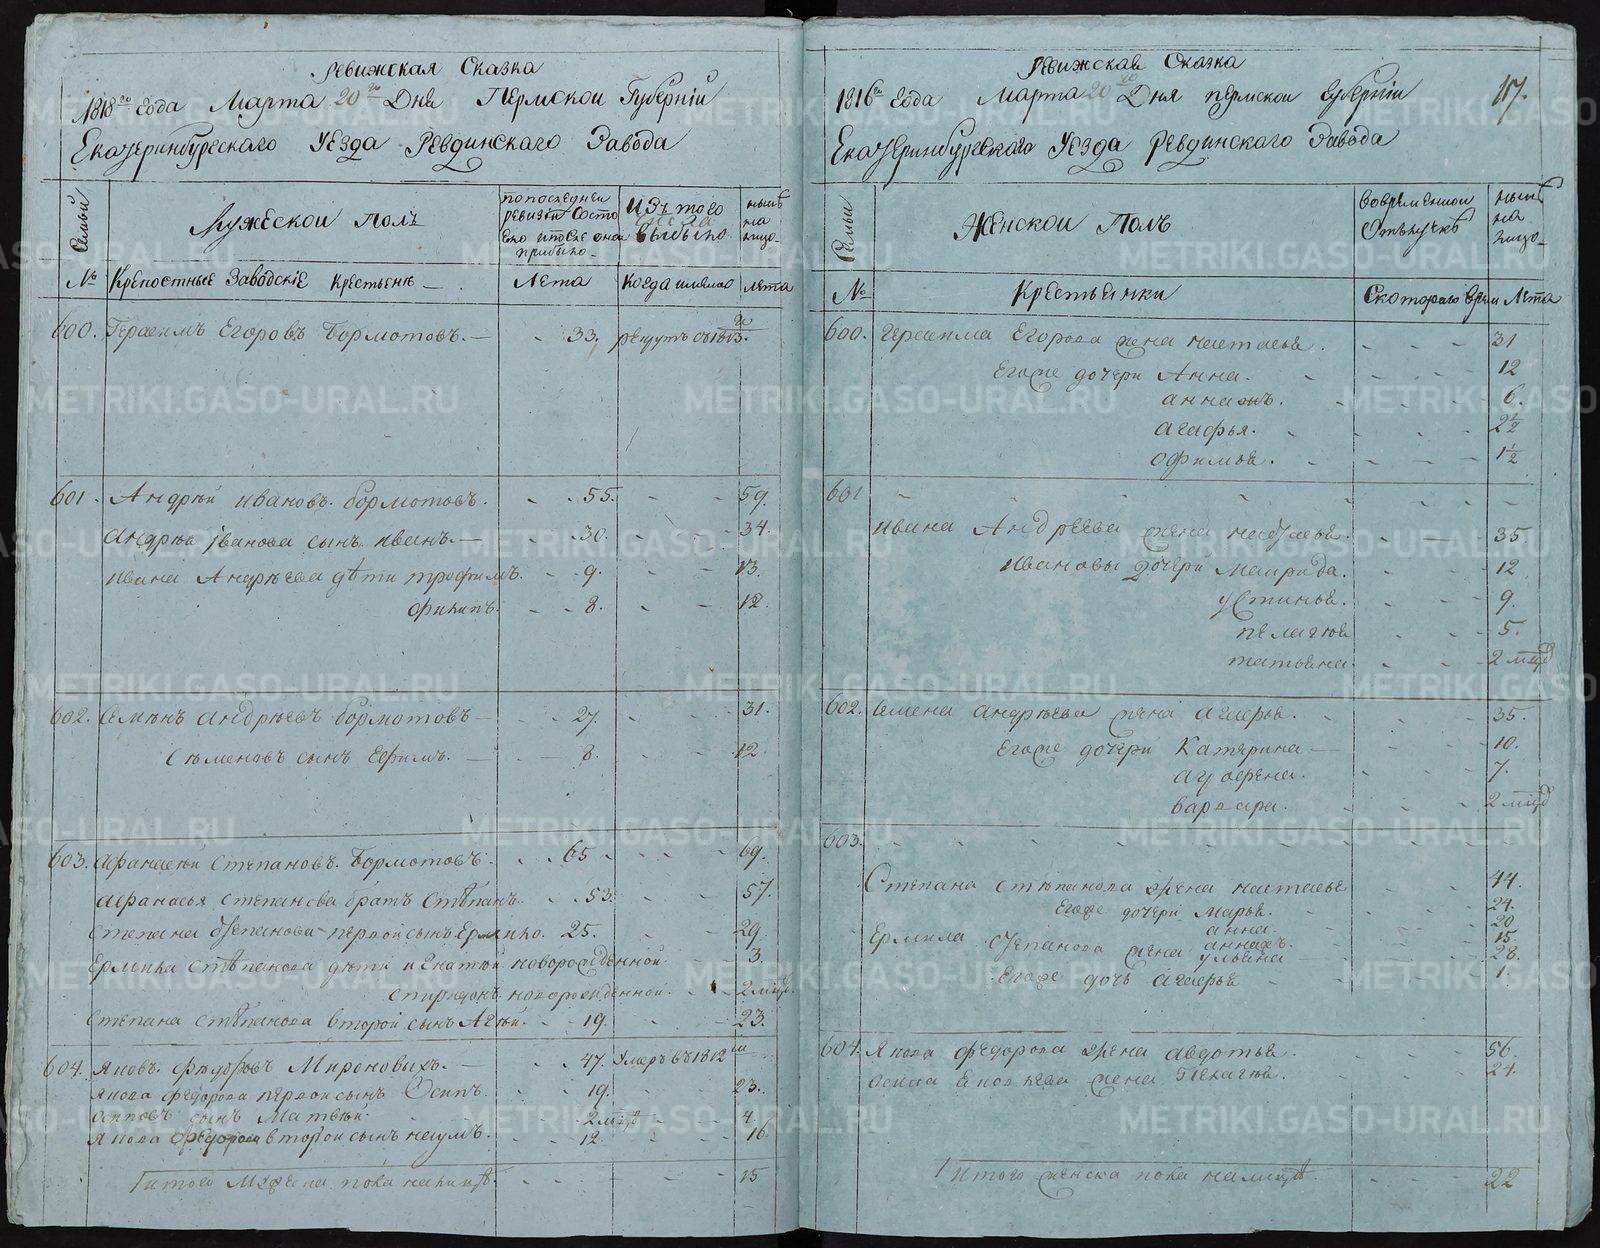 Ревижская Сказка
1818го Года Марта 20го Дня Пермской Губернiи
Екатеринбургскаго Уезда Ревдинскаго Завода
Семьи
Мужеской Полъ
попоследней ревизiи состо
яло ипосле оной прибыло
Изъ того числа выбыло
ныне на лицо
№ Крепостные Заводскiе Крестьяне
Лета
Когда имянно
лета
600. Герасимъ Егоровъ Бормотовъ. 33. рекрутъ
601. Андрей Ивановъ Бормотовъ. 55. 59.
Андрея Iванова сынъ Иванъ. 30. 34.
Ивана Андреева дети трофимъ. 9. 13.
филипъ. 8. 12.
602. Семенъ Андреевъ бормотовъ 27. 31.
Семеновъ сынъ Ефимъ. 8. 12
603. Афанасей Степановъ Бормотовъ. 65 69.
Афанасья Степанова братъ Степанъ. 53. 57.
Степана Степанова первой сынъ Ермило. 25. 29.
Ермила Степанова дети Игнатей новорожденной 3.
Спиридонъ новорожденной. 2 мцъ
Степана Степанова второй сынъ Агей. 19. 23.
604. Яковъ Федоровъ Мироновыхъ. 47. Умеръ въ 1812м
Якова Федорова первой сынъ Осипъ. 19. 23.
Осиповъ сынъ Матвей. 2 мцъ 4.
Якова Федорова второй сынъ наумъ. 12. 16
Итого Мужеска пола налицѣ. 15
Ревижская Сказка
1816го Года Марта 20го Дня пермской губернiи
117.
Екатеринбургскаго Уезда Ревдинскаго Завода
Семьи
Женской Полъ
вовременной Отлучкѣ
ныне на лицо
№
Крестьянки
Скотораго время
Лета
600. Герасима Егорова жена настасья. 31
Егоже дочери Анна. 12
аннажъ. 6.
агафья. 2½
офимья. 1½
601
Ивана Андреева жена 35
Ивановы дочери Маврида. 12
устинья. 9.
пелагея 5.
татьяна. 2 мцъ
602. Семена Андреева жена Агафья. 35.
Егоже дочери Катярина 10.
7.
варвара. 2 мцъ
603.
Степана степанова жена настасья 44.
Егоже дочери Марья. 24.
анна. 20.
аннажъ. 15.
Ермила Степанова жена ульяна 28.
Егоже дочь Агафья 1.
604. Якова Федорова жена авдотья. 56.
осипа Яковлева жена Пелагея. 24.
Итого женска пола налицѣ. 22
METRIKI.GASO-URAL.RU